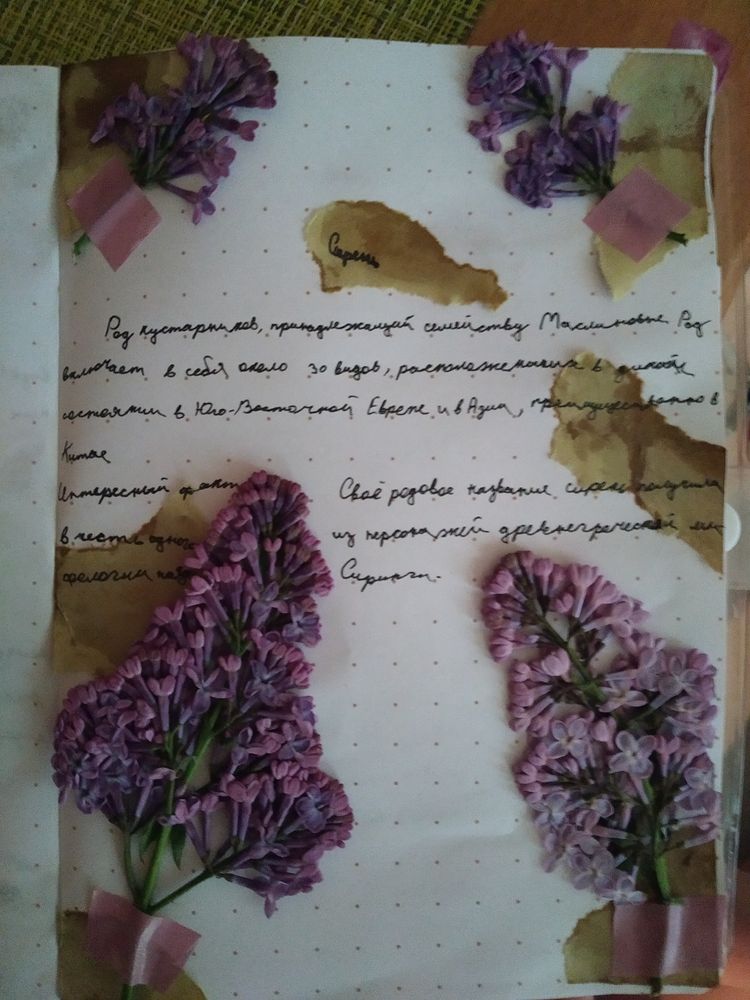 Сирень
Род кустарников, принадлежащий семейству Маслиновые. Род
включает в себя около 30 видов, расположенных в диком
состоянии в Юго-Восточной Европе и в Азии, преимущественно в
Китае
Интересный факт Своё родовое название сирень получила
в честь одного из персонажей древнегреческой ми-
фологии Сиринги.